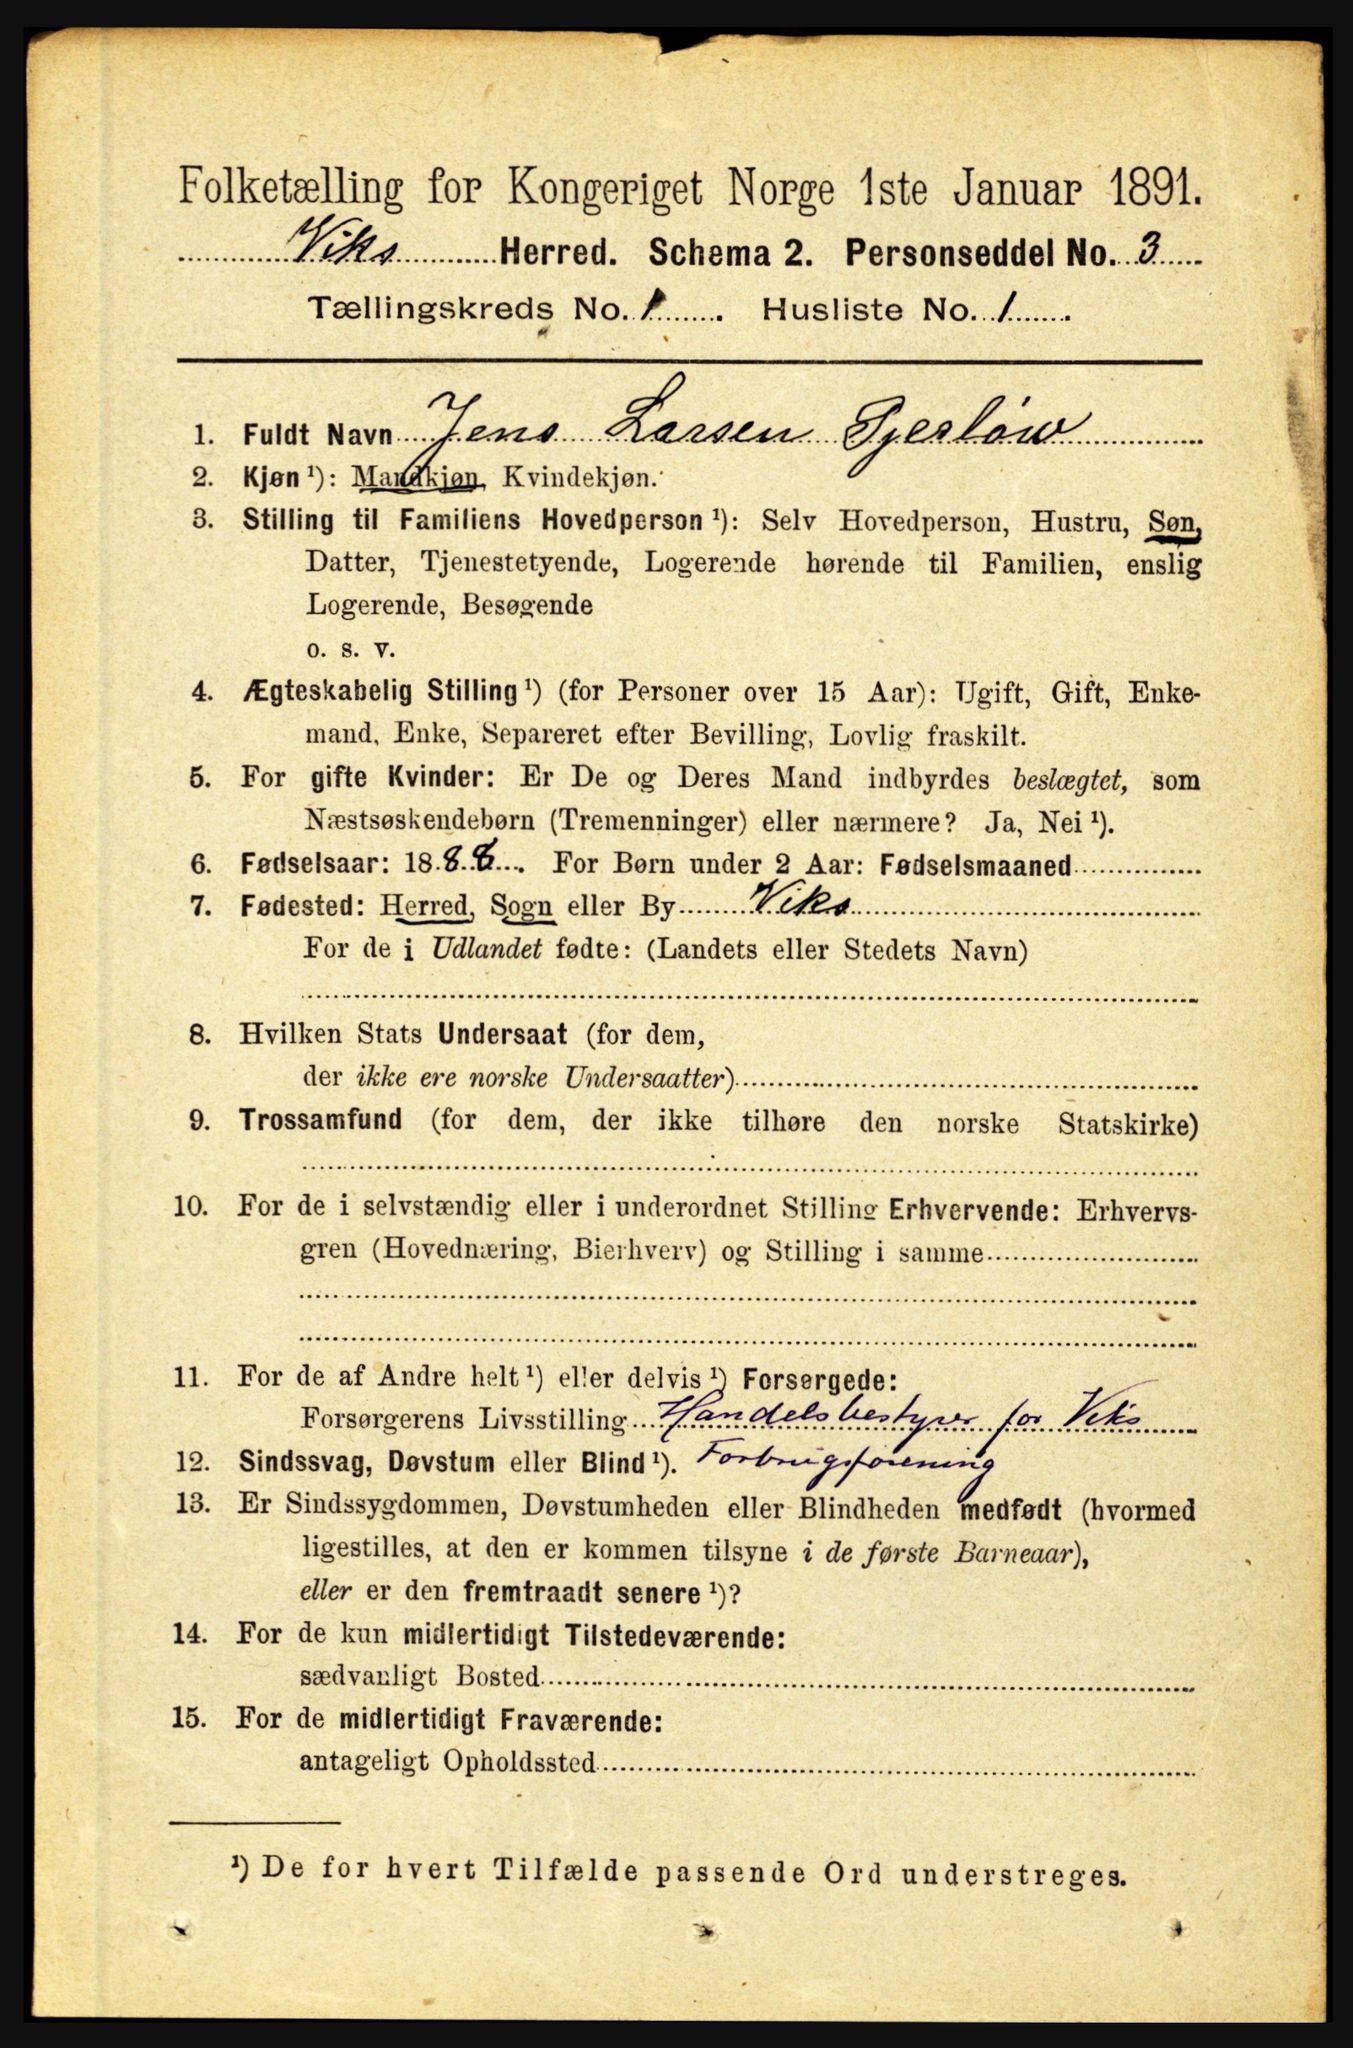 Folketælling for Kongeriget Norge 1ste Januar 1891.
Viks Herred. Schema 2. Personseddel No. 3
Tællingskreds No. 1. Husliste No. 1.
1. Fuldt Navn Jens Larsen Tjerløw
2. Kjøn ¹): Mandkjøn, Kvindekjøn.
3. Stilling til Familiens Hovedperson ¹): Selv Hovedperson, Hustru, Søn,
Datter, Tjenestetyende, Logerende hørende til Familien, enslig
Logerende, Besøgende
o. s. v.
4. Ægteskabelig Stilling ¹) (for Personer over 15 Aar): Ugift, Gift, Enke-
mand, Enke, Separeret efter Bevilling, Lovlig fraskilt.
5. For gifte Kvinder: Er De og Deres Mand indbyrdes beslægtet, som
Næstsøskendebørn (Tremenninger) eller nærmere? Ja, Nei ¹).
6. Fødselsaar: 1888. For Børn under 2 Aar: Fødselsmaaned
7. Fødested: Herred, Sogn eller By Viks
For de i Udlandet fødte: (Landets eller Stedets Navn)
8. Hvilken Stats Undersaat (for dem,
der ikke ere norske Undersaatter)
9. Trossamfund (for dem, der ikke tilhøre den norske Statskirke)
10. For de i selvstændig eller i underordnet Stilling Erhvervende: Erhvervs-
gren (Hovednæring, Bierhverv) og Stilling i samme
11. For de af Andre helt ¹) eller delvis ¹) Forsørgede:
Forsørgerens Livsstilling Handelsbestyrer for Viks
12. Sindssvag, Døvstum eller Blind ¹). Forbrugsforening
13. Er Sindssygdommen, Døvstumheden eller Blindheden medfødt (hvormed
ligestilles, at den er kommen tilsyne i de første Barneaar),
eller er den fremtraadt senere ¹)?
14. For de kun midlertidigt Tilstedeværende:
sædvanligt Bosted
15. For de midlertidigt Fraværende:
antageligt Opholdssted
¹) De for hvert Tilfælde passende Ord understreges.